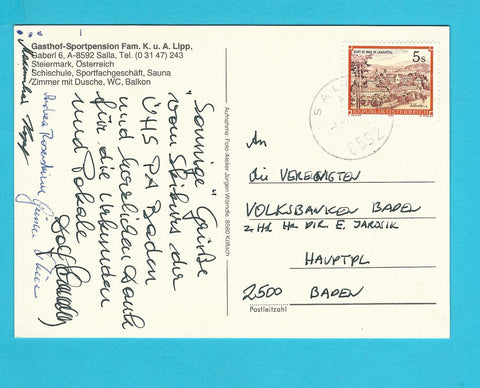 Gasthof-Sportpension Fam. K. u. A. Lipp,
Gaberl 6, A-8592 Salla, Tel. (0 31 47) 243
Steiermark, Österreich
Schischule, Sportfachgeschäft, Sauna
Zimmer mit Dusche, WC, Balkon
"Sonnige" Grüße
vom Skikurs der
ÜHS PA Baden
und herzlichen Dank
für die Urkunden
und Pokale
Aufnahme: Foto-Atelier Jürgen Wörndle, 8580 Köflach
5s
REPUBLIK ÖSTERREICH
8592
An
die VEREINIGTEN
VOLKSBANKEN BADEN
z. Hd Hr DIR. E. JAROSIK
HAUPTPL
2500 BADEN
Postleitzahl